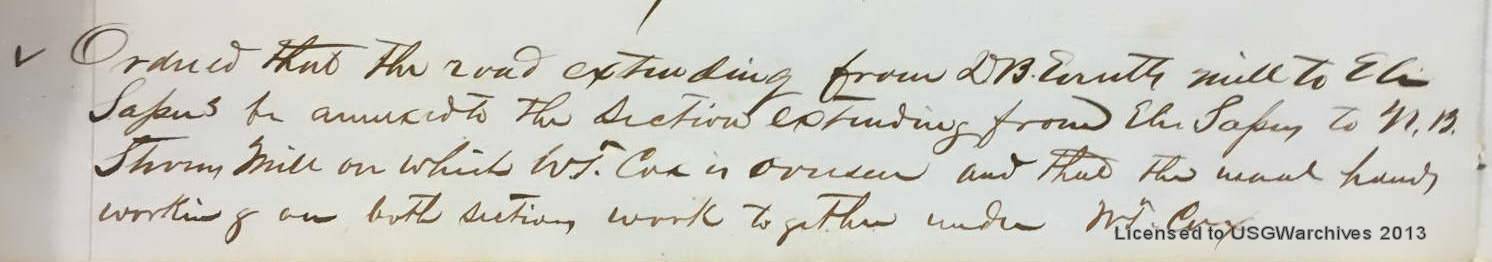 ✓ Ordered that the road extending from D B. mill to Eli
Sapus be annexed to the section extending from Eli Sapus to N. B.
Strong Mill on which W T. Cox is overseer and that the usual hands
working on both sections work together under W T. Cox
Licensed to USGWarchives 2013